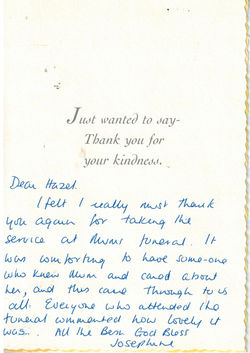 Just wanted to say-
Thank you for
your kindness.
Dear Hazel.
I felt I really must thank
you again for taking the
service at Mums funeral. It
was comforting to have some-one
who knew Mum and cared about
her, and this came through to us
all. Everyone who attended the
funeral commented how lovely it
was.. All the Best God Bless
Josephine